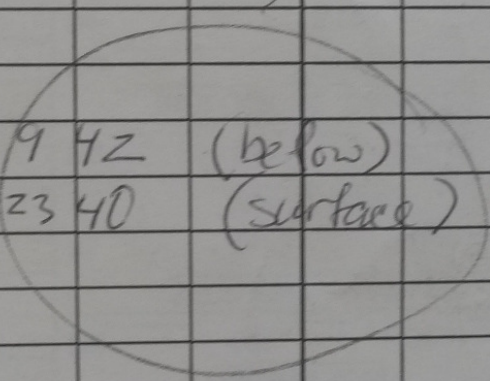 9 42 (below)
23 40 (surface)